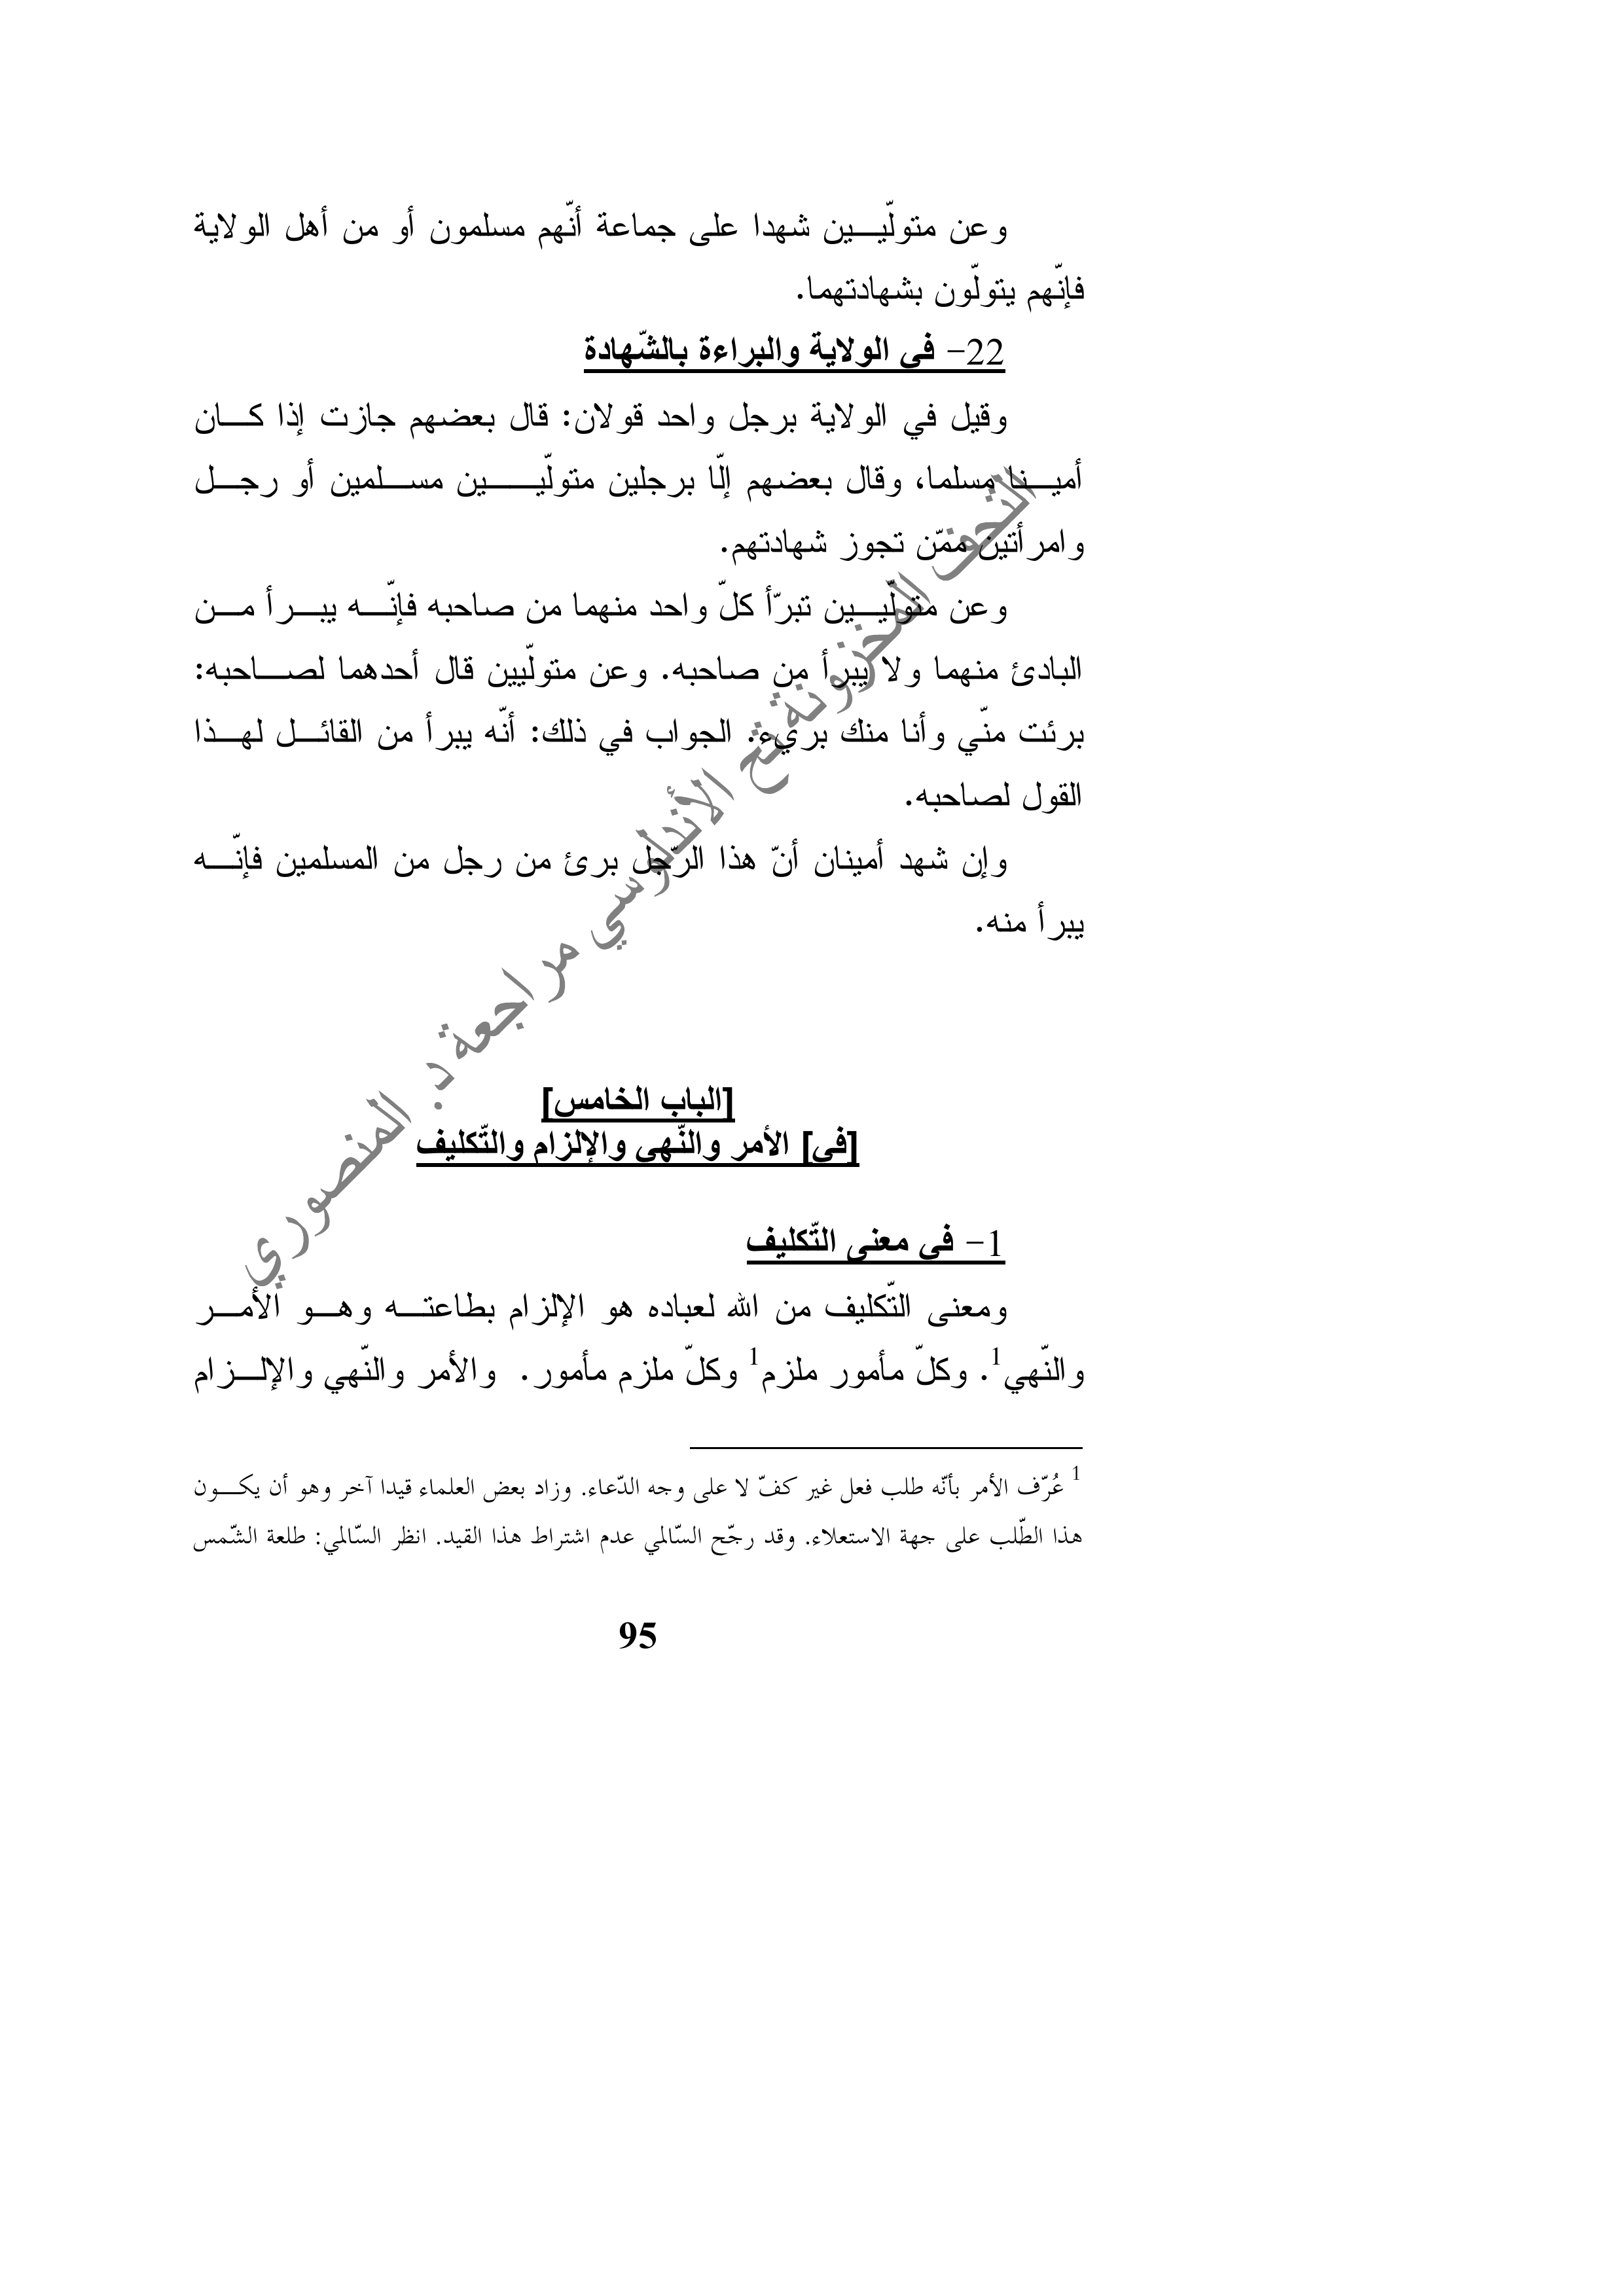 وعن متولّيـــين شهدا على جماعة أنّهم مسلمون أو من أهل الولاية
فإنّهم يتولّون بشهادتهما.
22- في الولاية والبراءة بالشّهادة
وقيل في الولاية برجل واحد قولان: قال بعضهم جازت إذا كـــان
أميـــنا مسلما، وقال بعضهم إلّا برجلين متولّيـــــين مســـلمين أو رجـــل
وامرأتين ممّن تجوز شهادتهم.
وعن متولّيـــين تبرّأ كلّ واحد منهما من صاحبه فإنّـــه يبـــرأ مـــن
البادئ منهما ولا يبرأ من صاحبه. وعن متولّيين قال أحدهما لصـــاحبه:
برئت منّي وأنا منك بريء. الجواب في ذلك: أنّه يبرأ من القائـــل لهـــذا
القول لصاحبه.
وإن شهد أمينان أنّ هذا الرّجل برئ من رجل من المسلمين فإنّـــه
يبرأ منه.
[الباب الخامس]
[في] الأمر والنّهي والإلزام والتّكليف
1- في معنى التّكليف
ومعنى التّكليف من الله لعباده هو الإلزام بطاعتـــه وهـــو الأمـــر
والنّهي1. وكلّ مأمور ملزم1 وكلّ ملزم مأمور. والأمر والنّهي والإلـــزام
1 عُرّف الأمر بأنّه طلب فعل غير كفّ لا على وجه الدّعاء. وزاد بعض العلماء قيدا آخر وهو أن يكـــون
هذا الطّلب على جهة الاستعلاء. وقد رجّح السّالمي عدم اشتراط هذا القيد. انظر السّالمي: طلعة الشّمس
95
التحف المخزونة تح الأندلوسي مراجعة د. المنصوري